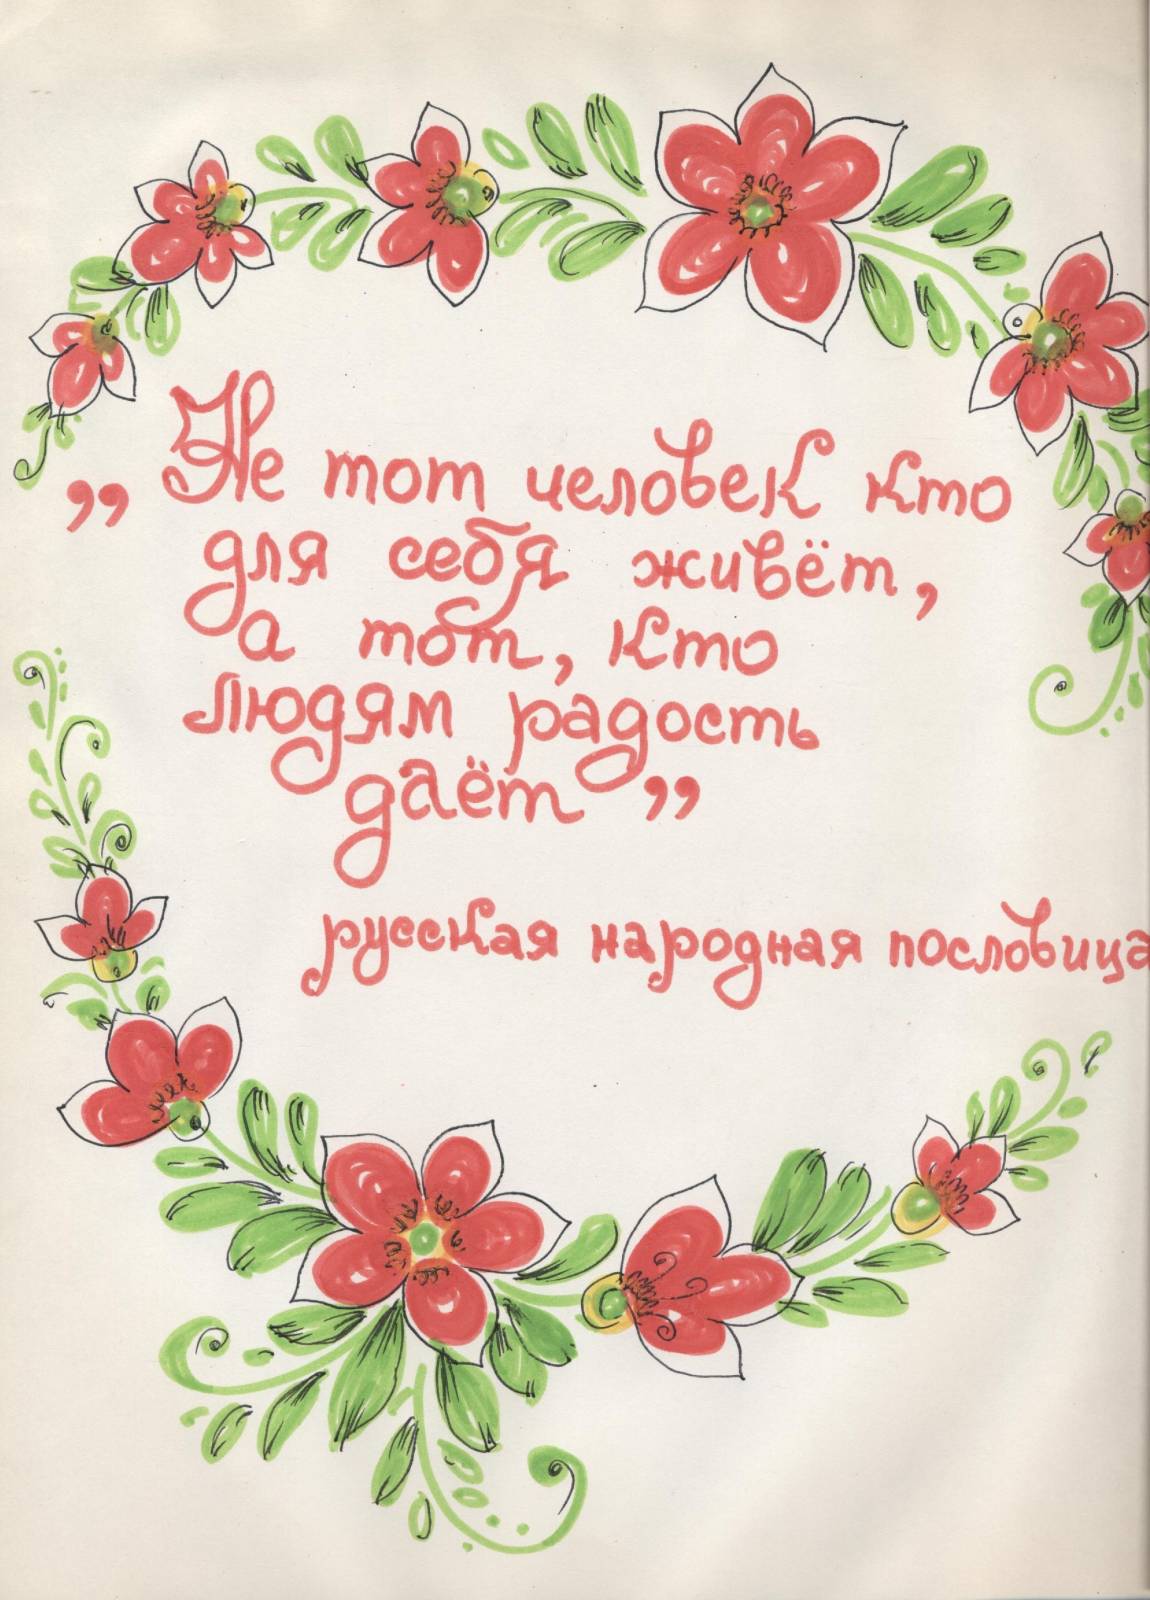 „Не тот человек кто
для себя живёт,
а тот, кто
людям радость
даёт”
русская народная пословица